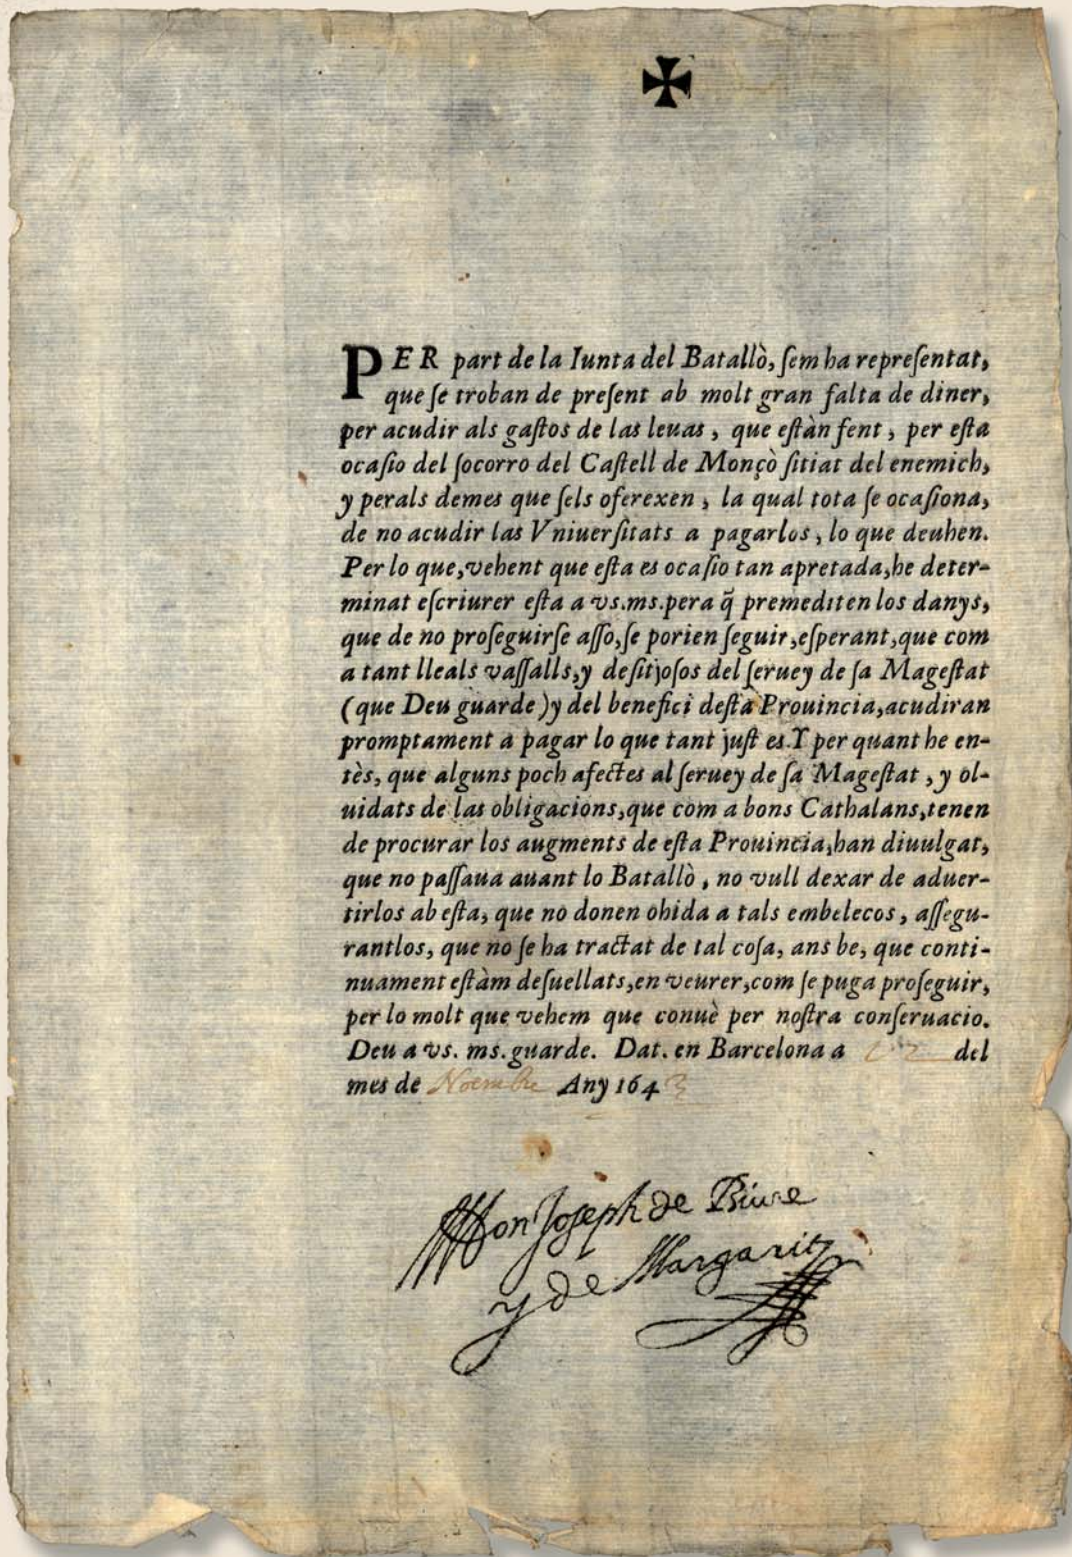 PER part de la Iunta del Batallò, ſem ha repreſentat,
que ſe troban de preſent ab molt gran falta de diner,
per acudir als gaſtos de las leuas, que eſtàn fent, per eſta
ocaſio del ſocorro del Caſtell de Monçò ſitiat del enemich,
y perals demes que ſels oferexen, la qual tota ſe ocaſiona,
de no acudir las Vniuerſitats a pagarlos, lo que deuhen.
Per lo que, vehent que eſta es ocaſio tan apretada, he deter-
minat eſcriurer eſta a vs.ms.pera q̃ premediten los danys,
que de no proſeguirſe aſſo, ſe porien ſeguir, eſperant, que com
a tant lleals vaſſalls, y deſitjoſos del ſeruey de ſa Mageſtat
(que Deu guarde) y del benefici deſta Prouincia, acudiran
promptament a pagar lo que tant juſt es. Y per quant he en-
tès, que alguns poch afectes al ſeruey de ſa Mageſtat, y ol-
uidats de las obligacions, que com a bons Cathalans, tenen
de procurar los augments de eſta Prouincia, han diuulgat,
que no paſſaua auant lo Batallò, no vull dexar de aduer-
tirlos ab eſta, que no donen ohida a tals embelecos, aſſegu-
rantlos, que no ſe ha tractat de tal coſa, ans be, que conti-
nuament eſtàm deſuellats, en veurer, com ſe puga proſeguir,
per lo molt que vehem que conuè per noſtra conſeruacio.
Deu a vs. ms. guarde. Dat. en Barcelona a del
mes de Noembre Any 1643
Don Joseph de Biure
y de Margarit